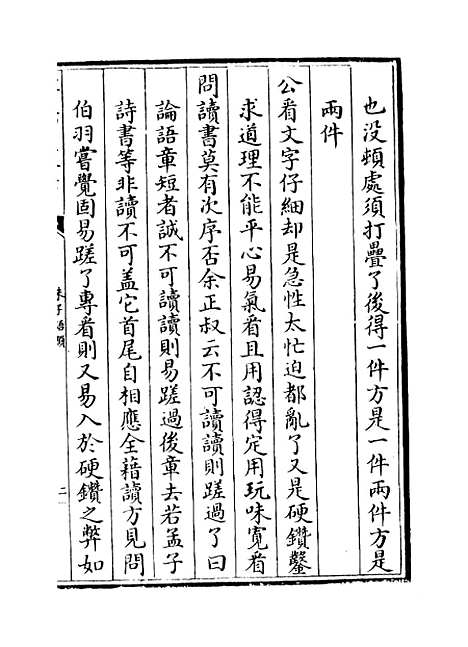 也没頓處須打疊了後得一件方是一件兩件方是
兩件
公看文字仔細却是急性太忙迫都亂了又是硬鑽鑿
求道理不能平心易氣看且用認得定用玩味寛看
問讀書莫有次序否余正叔云不可讀讀則蹉過了曰
論語章短者誠不可讀讀則易蹉過後章去若孟子
詩書等非讀不可盖它首尾自相應全藉讀方見問
伯羽嘗覺固易蹉了專看則又易入於硬鑽之弊如
朱子語類
二